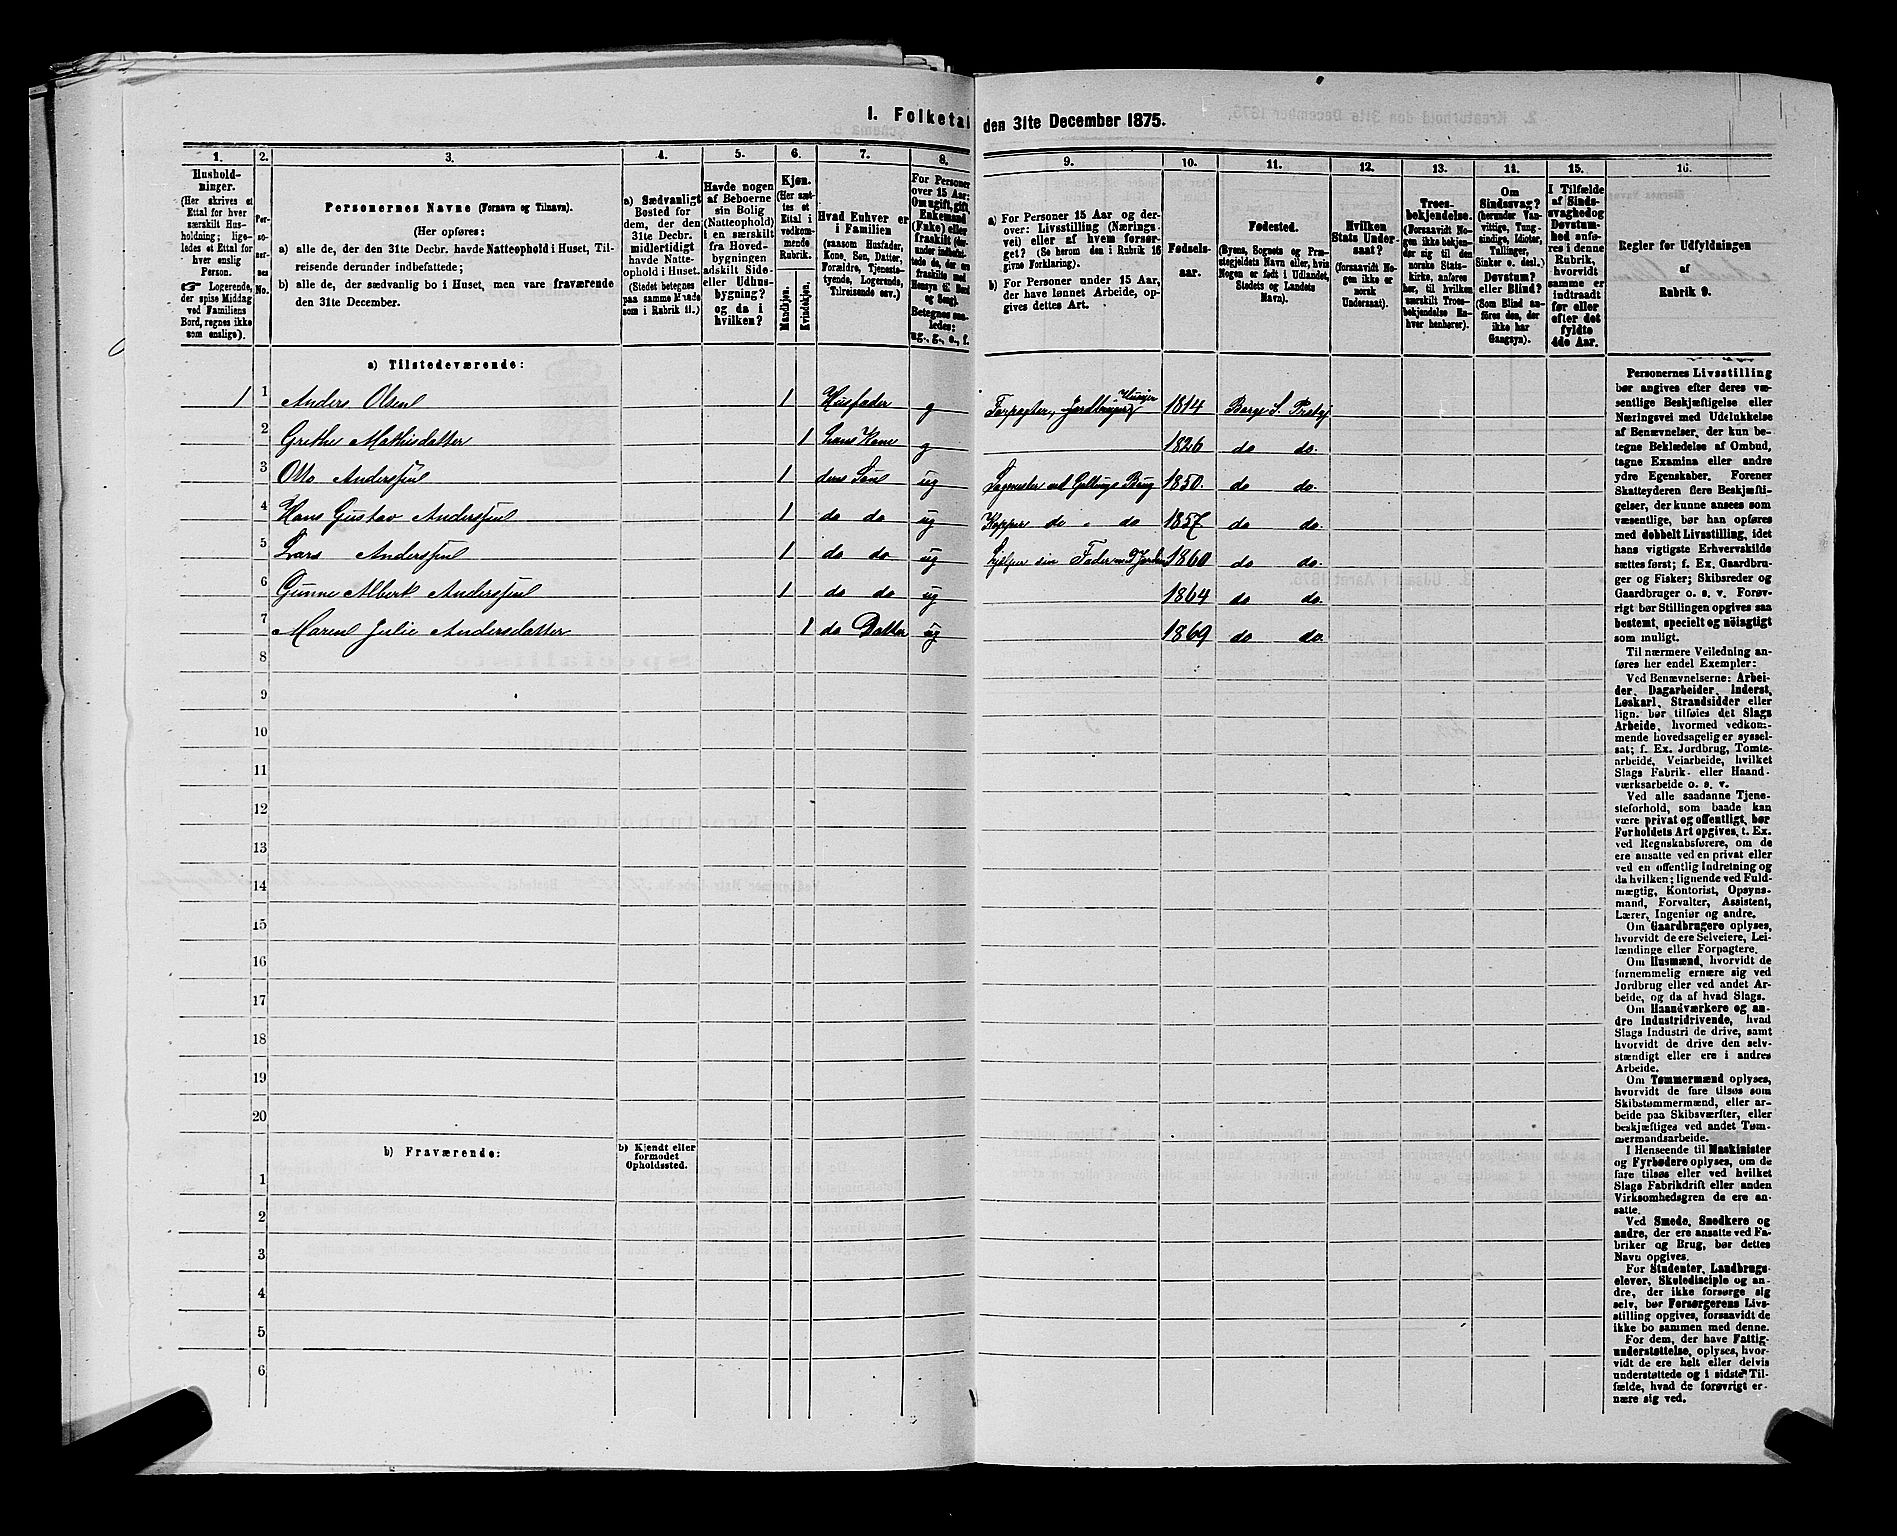 1. Folketal den 31te December 1875.
1. 2. 3. 4. 5. 6. 7. 8. 9. 10. 11. 12. 13. 14. 15. 16.
Hushold-
ninger.
(Her skrives et
Ettal for hver
særskilt Hus-
holdning; lige-
ledes et Ettal for
hver enslig
Person.
☞ Logerende,
der spise Middag
ved Familiens
Bord, regnes ikke
som enslige).
Per-
so-
ner-
nes
No.
Personernes Navne (Fornavn og Tilnavn).
(Her opføres:
a) alle de, der den 31te Decbr. havde Natteophold i Huset, Til-
reisende derunder indbefattede;
b) alle de, der sædvanlig bo i Huset, men vare fraværende
den 31te December.
a) Sædvanligt
Bosted for
dem, der den
31te Decbr.
midlertidigt
havde Natte-
ophold i Huset.
(Stedet betegnes
paa samme Maade
som i Rubrik 11.)
Havde nogen
af Beboerne
sin Bolig
(Natteophold)
i en særskilt
fra Hoved-
bygningen
adskilt Side-
eller Udhus-
bygning?
og da i
hvilken?
Kjøn.
(Her sæt-
tes et
Ettal i
vedkom-
mende
Rubrik.
Mandkjøn.
Kvindekjøn.
Hvad Enhver er
i Familien
(saasom Husfader,
Kone, Søn, Datter,
Forældre, Tjeneste-
tyende, Logerende,
Tilreisende osv.)
For Personer
over 15 Aar:
Om ugift, gift,
Enkemand
(Enke) eller
fraskilt (der-
under indbefat-
tede de, der ere
fraskilte med
Hensyn til Bord
og Seng).
Betegnes saa-
ledes:
ug., g., e., f.
a) For Personer 15 Aar og der-
over: Livsstilling (Nærings-
vei) eller af hvem forsør-
get? (Se herom den i Rubrik 16
givne Forklaring).
b) For Personer under 15 Aar,
der have lønnet Arbeide, op-
gives dettes Art.
Fødsels-
aar.
Fødested.
(Byens, Sognets og Præ-
stegjeldets Navn eller, hvis
Nogen er født i Udlandet,
Stedets og Landets
Navn).
Hvilken
Stats Under-
saat?
(forsaavidt No-
gen ikke er
norsk
Undersaat).
Troes-
bekjendelse.
(Forsaavidt No-
gen ikke bekjen-
der sig til den
norske Stats-
kirke, anføres
her, til hvilken
særskilt Troes-
bekjendelse En-
hver henhører).
Om
Sindssvag?
(herunder Van-
vittige, Tung-
sindige, Idioter,
Tullinger,
Sinker o. desl.).
Døvstum?
eller Blind?
(Som Blind an-
føres den, der
ikke har
Gangsyn).
I Tilfælde
af Sinds-
svaghed og
Døvstum-
hed anfø-
res i denne
Rubrik,
hvorvidt
samme er
indtraadt
før eller
efter det
fyldte
4de Aar.
Regler for Udfyldningen
af
Rubrik 9.
a) Tilstedeværende:
1 1 Anders Olsen 1 Husfader g Forpagter, Jordbruger Husejer 1814 Borge S. Prstgj
2 Grethe Mathisdatter 1 hans Kone g 1826 do do.
3 Otto Anderssen 1 deres Søn ug Sagmester ved Gellungs Brug 1850. do do.
4 Hans Gustav Anderssen 1 do do ug do " do 1857 do do.
5 Lars Anderssen 1 do do ug hjelper sin Fader med Jorden 1860 do do.
6 Gunne Albert Anderssen 1 do do ug 1864 do do.
7 Maren Julie Andersdatter 1 do Datter ug 1869 do do.
8
9
10
11
12
13
14
15
16
17
18
19
20
b) Fraværende:
b) Kjendt eller
formodet
Opholdssted.
1
2
3
4
5
6
Personernes Livsstilling
bør angives efter deres væ-
sentlige Beskjæftigelse eller
Næringsvei med Udelukkelse
af Benævnelser, der kun be-
tegne Beklædelse af Ombud,
tagne Examina eller andre
ydre Egenskaber. Forener
Skatteyderen flere Beskjæfti-
gelser, der kunne ansees som
væsentlige, bør han opføres
med dobbelt Livsstilling, idet
hans vigtigste Erhvervskilde
sættes først; f. Ex. Gaardbru-
ger og Fisker; Skibsreder og
Gaardbruger o. s. v. Forøv-
rigt bør Stillingen opgives saa
bestemt, specielt og nøiagtigt
som muligt.
Til nærmere Veiledning an-
føres her endel Exempler:
Ved Benævnelserne: Arbei-
der, Dagarbeider, Inderst,
Løskarl, Strandsidder eller
lign. bør tilføies det Slags
Arbeide, hvormed vedkom-
mende hovedsagelig er syssel-
sat; f. Ex. Jordbrug, Tomte-
arbeide, Veiarbeide, hvilket
Slags Fabrik- eller Haand-
værksarbeide o. s. v.
Ved alle saadanne Tjene-
steforhold, som baade kan
være privat og offentligt, bør
Forholdets Art opgives, t. Ex.
ved Regnskabsførere, om de
ere ansatte ved en privat eller
ved en offentlig Indretning og
da hvilken; lignende ved Fuld-
mægtig, Kontorist, Opsyns-
mand, Forvalter, Assistent,
Lærer, Ingeniør og andre.
Om Gaardbrugere oplyses,
hvorvidt de ere Selveiere, Lei-
lændinge eller Forpagtere.
Om Husmænd, hvorvidt de
fornemmelig ernære sig ved
Jordbrug eller ved andet Ar-
beide, og da af hvad Slags.
Om Haandværkere og an-
dre industridrivende, hvad
Slags Industri de drive, samt
hvorvidt de drive den selv-
stændigt eller ere i andres
Arbeide.
Om Tømmermænd oplyses,
hvorvidt de fare tilsøs som
Skibstømmermænd, eller ar-
beide paa Skibsværfter, eller
beskjæftiges ved andet Tøm-
mermandsarbeide.
I Henseende til Maskinister
og Fyrbødere oplyses, om de
fare tilsøs eller ved hvilket
Slags Fabrikdrift eller anden
Virksomhedsgren de ere an-
satte.
Ved Smede, Snedkere og
andre, der ere ansatte ved Fa-
briker og Brug, bør dettes
Navn opgives.
For Studenter, Landbrugs-
elever, Skoledisciple og an-
dre, der ikke forsørge sig
selv, bør Forsørgerens Livs-
stilling opgives, forsaavidt de
ikke bo sammen med denne.
For dem, der have Fattig-
understøttelse, oplyses, hvor-
vidt de ere helt eller delvis
understøttede og i sidste Til-
fælde, hvad de forøvrigt er-
nære sig ved.